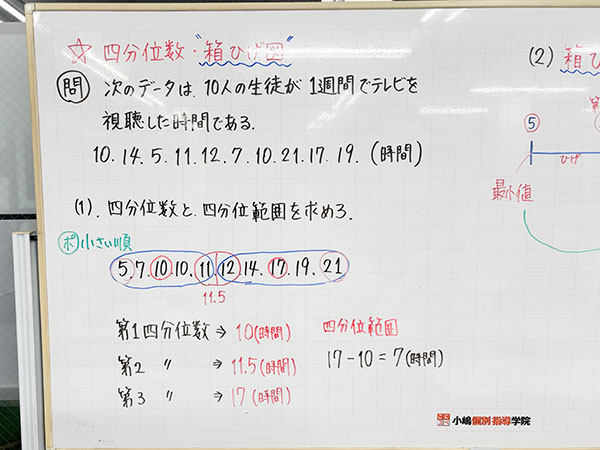 ☆ 四分位数・"箱ひげ図"
問 次のデータは、10人の生徒が1週間でテレビを
視聴した時間である.
10. 14. 5. 11. 12. 7. 10. 21. 17. 19. (時間)
(1). 四分位数と、四分位範囲を求めろ.
ポ 小さい順
5. 7. 10. 10. 11. 12. 14. 17. 19. 21
11.5
第1四分位数 ⇒ 10(時間)
第2 〃 ⇒ 11.5(時間)
第3 〃 ⇒ 17(時間)
四分位範囲
17-10=7(時間)
(2) 箱ひ
5
ひげ
最小値
小嶋個別指導学院